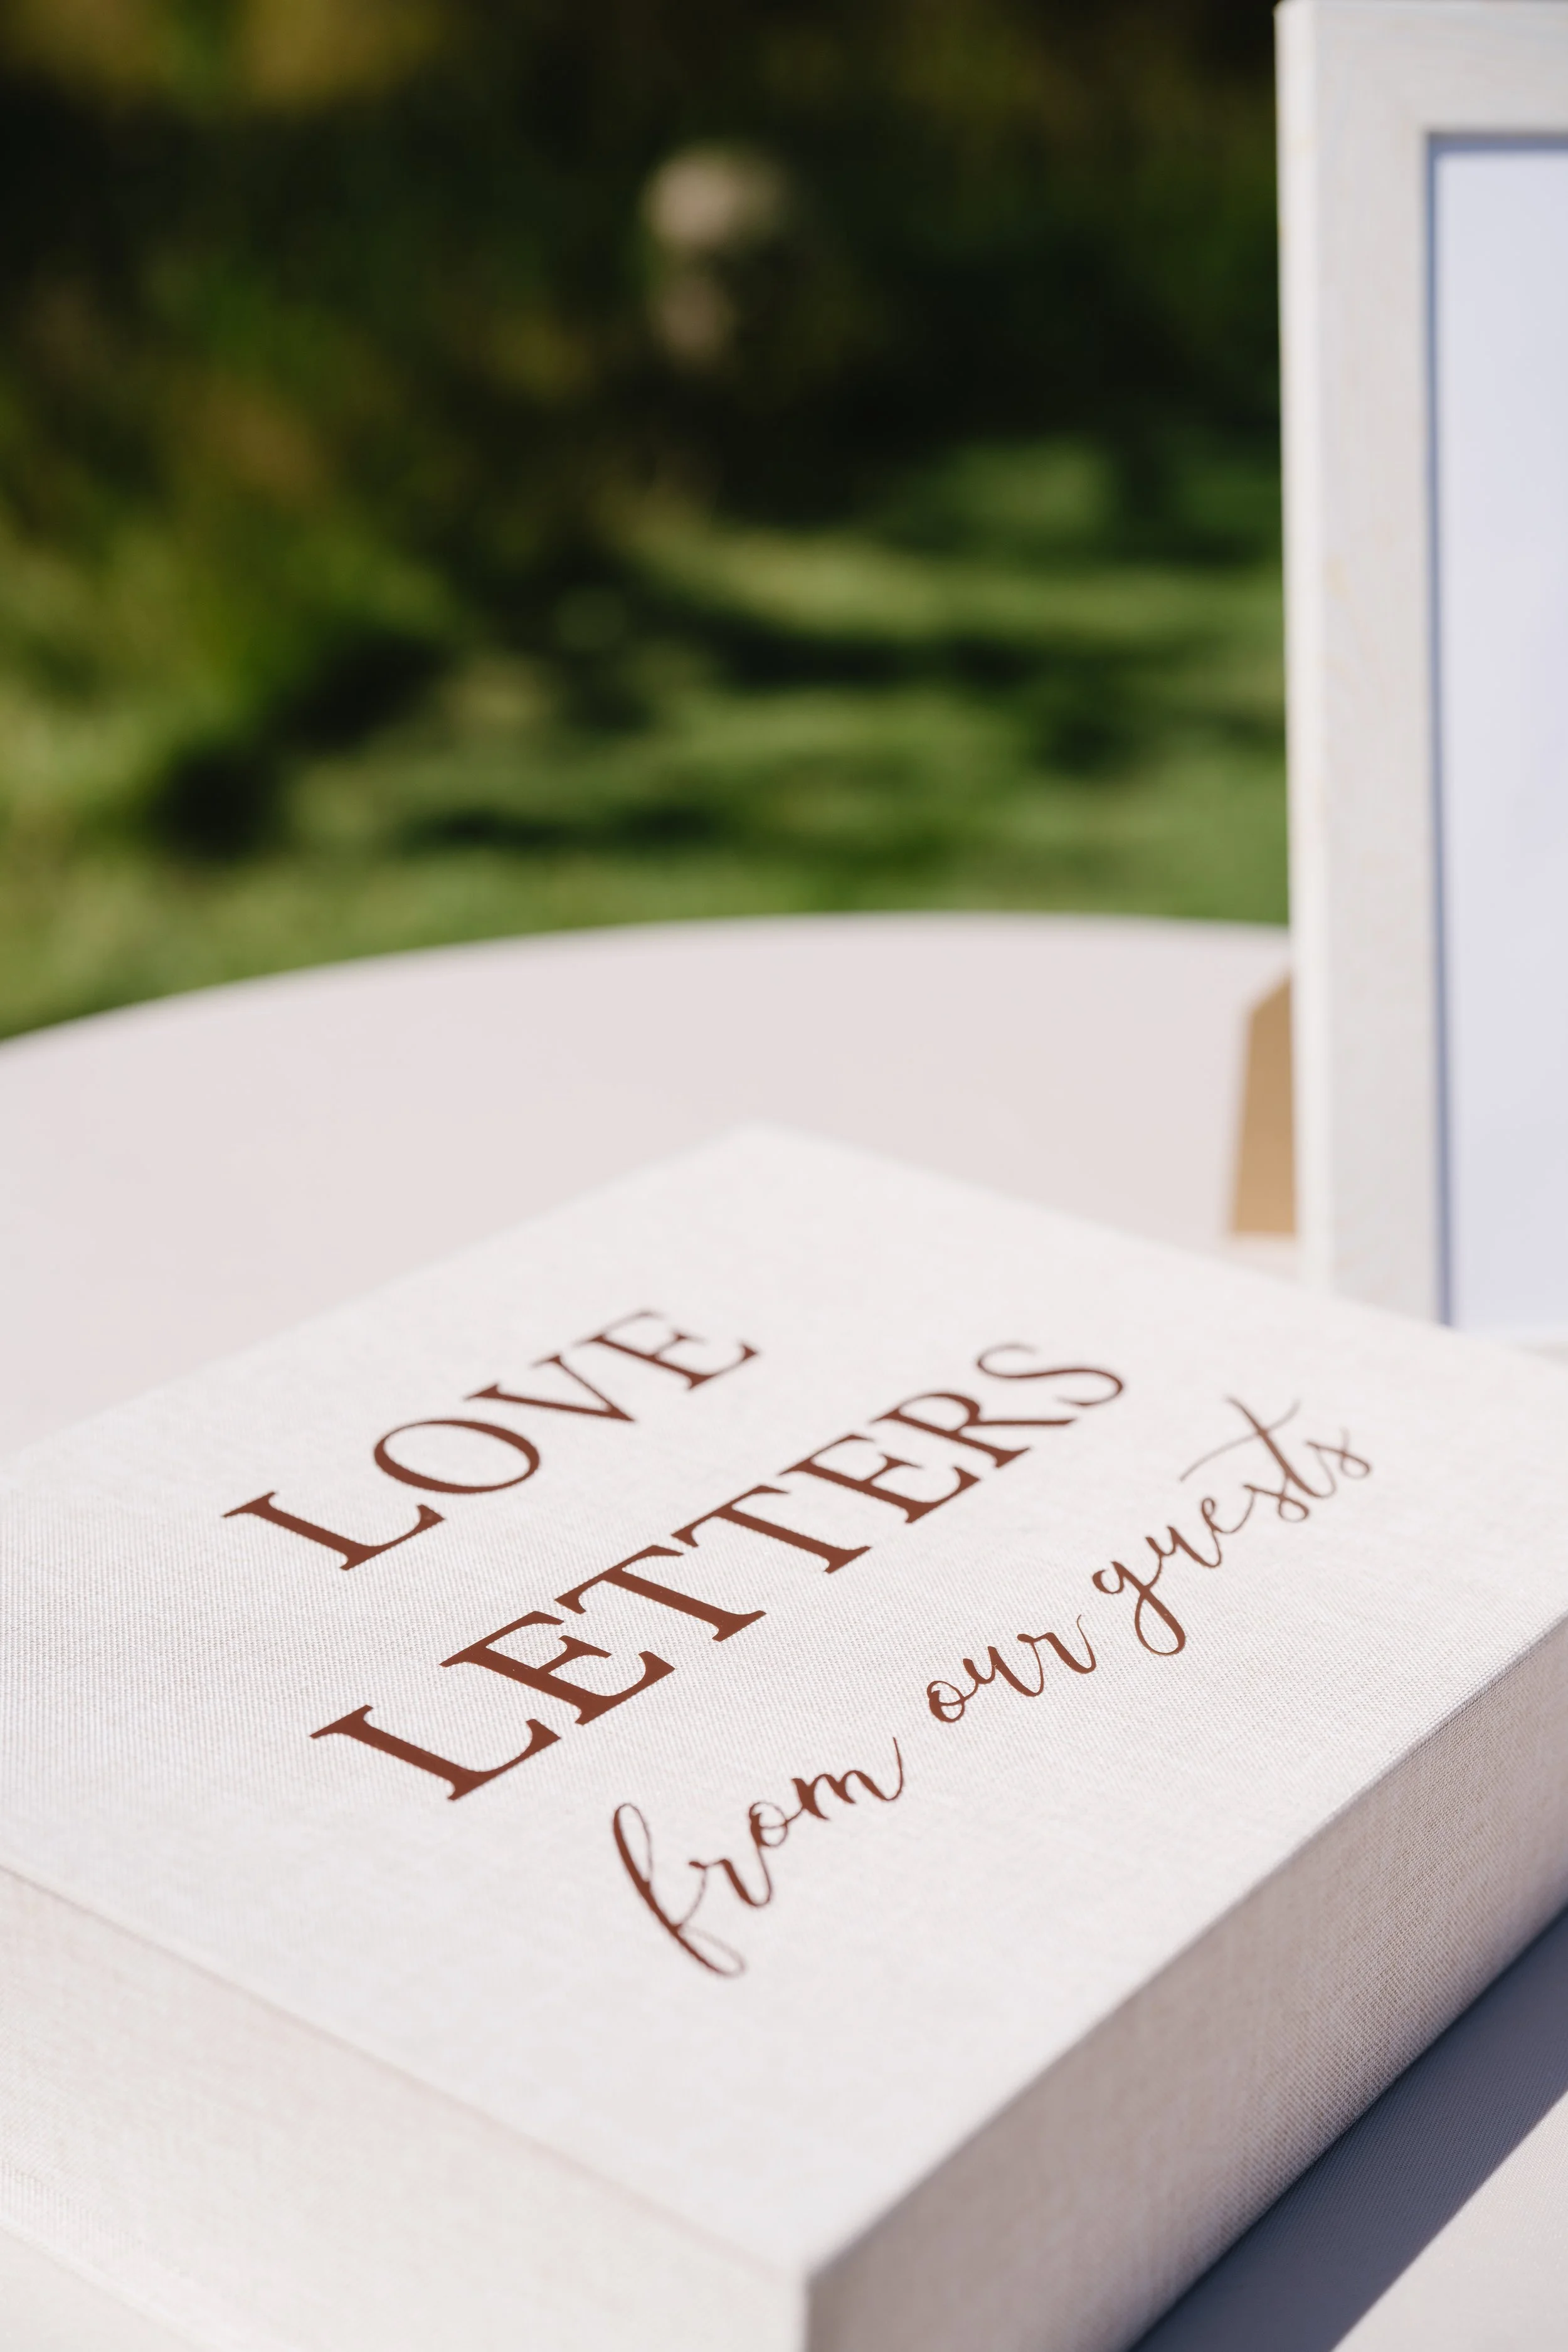 LOVE
LETTERS
from our guests